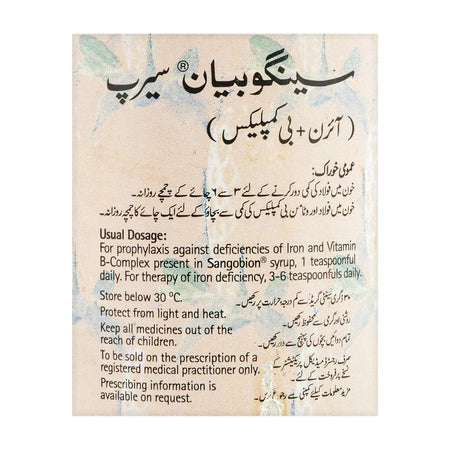 سینگوبیان® سیرپ
(آئرن + بی کمپلیکس)
عمومی خوراک:
خون میں فولاد کی کمی دور کرنے کے لئے ۳ سے ۶ چائے کے چمچے روزانہ۔
خون میں فولاد اور وٹامن بی کمپلیکس کی کمی سے بچاؤ کے لئے ایک چائے کا چمچہ روزانہ۔
Usual Dosage:
For prophylaxis against deficiencies of Iron and Vitamin
B-Complex present in Sangobion® syrup, 1 teaspoonful
daily. For therapy of iron deficiency, 3-6 teaspoonfuls daily.
Store below 30 °C.
۳۰ ڈگری سینٹی گریڈ سے کم درجہ حرارت پر رکھیں۔
Protect from light and heat.
روشنی اور گرمی سے محفوظ رکھیں۔
Keep all medicines out of the
reach of children.
تمام دوائیں بچوں کی پہنچ سے دور رکھیں۔
To be sold on the prescription of a
registered medical practitioner only.
صرف رجسٹرڈ میڈیکل پریکٹیشنر کے
نسخے پر فروخت کے لئے۔
Prescribing information is
available on request.
مزید معلومات کیلئے کمپنی سے رجوع کریں۔